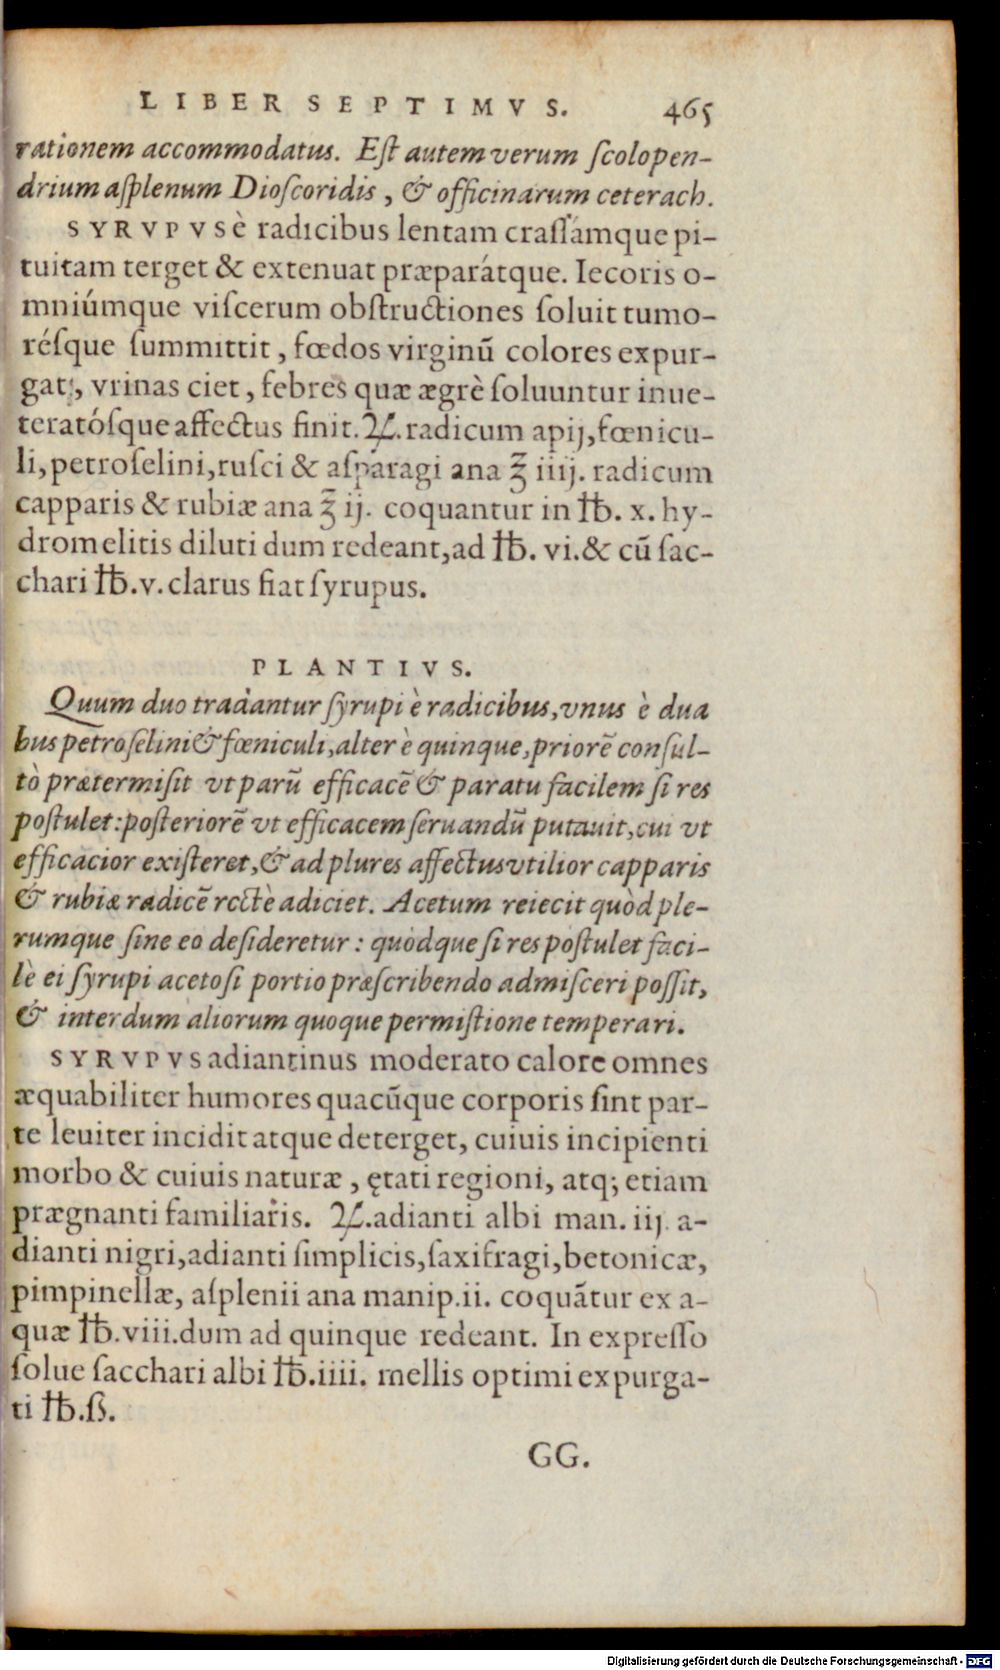 LIBER SEPTIMVS. 465
rationem accommodatus. Eſt autem verum ſcolopen-
drium aſplenum Dioſcoridis, & officinarum ceterach.
SYRVPVS è radicibus lentam craſſámque pi-
tuitam terget & extenuat præparátque. Iecoris o-
mniúmque viſcerum obſtructiones ſoluit tumo-
réſque ſummittit, fœdos virginū colores expur-
gat, vrinas ciet, febres quæ ægrè ſoluuntur inue-
teratóſque affectus finit. ℞. radicum apij, fœnicu-
li, petroſelini, ruſci & aſparagi ana ℥ iiij. radicum
capparis & rubiæ ana ℥ ij. coquantur in ℔. x. hy-
dromelitis diluti dum redeant, ad ℔. vi. & cū ſac-
chari ℔. v. clarus fiat ſyrupus.
PLANTIVS.
Quum duo tradantur ſyrupi è radicibus, vnus è dua
bus petroſelini & fœniculi, alter è quinque, priorē conſul-
tò prætermiſit vt parū efficacē & paratu facilem ſi res
poſtulet: poſteriorē vt efficacem ſeruandū putauit, cui vt
efficacior exiſteret, & ad plures affectus vtilior capparis
& rubiæ radicē rectè adiciet. Acetum reiecit quòd ple-
rumque ſine eo deſideretur: quòdque ſi res poſtulet faci-
lè ei ſyrupi acetoſi portio præſcribendo admiſceri poſſit,
& interdum aliorum quoque permiſtione temperari.
SYRVPVS adiantinus moderato calore omnes
æquabiliter humores quacūque corporis ſint par-
te leuiter incidit atque deterget, cuiuis incipienti
morbo & cuiuis naturæ, ętati regioni, atq; etiam
prægnanti familiaris. ℞. adianti albi man. iij. a-
dianti nigri, adianti ſimplicis, ſaxifragi, betonicæ,
pimpinellæ, aſplenii ana manip. ii. coquātur ex a-
quæ ℔. viii. dum ad quinque redeant. In expreſſo
ſolue ſacchari albi ℔. iiii. mellis optimi expurga-
ti ℔. ß.
GG.
Digitalisierung gefördert durch die Deutsche Forschungsgemeinschaft - DFG